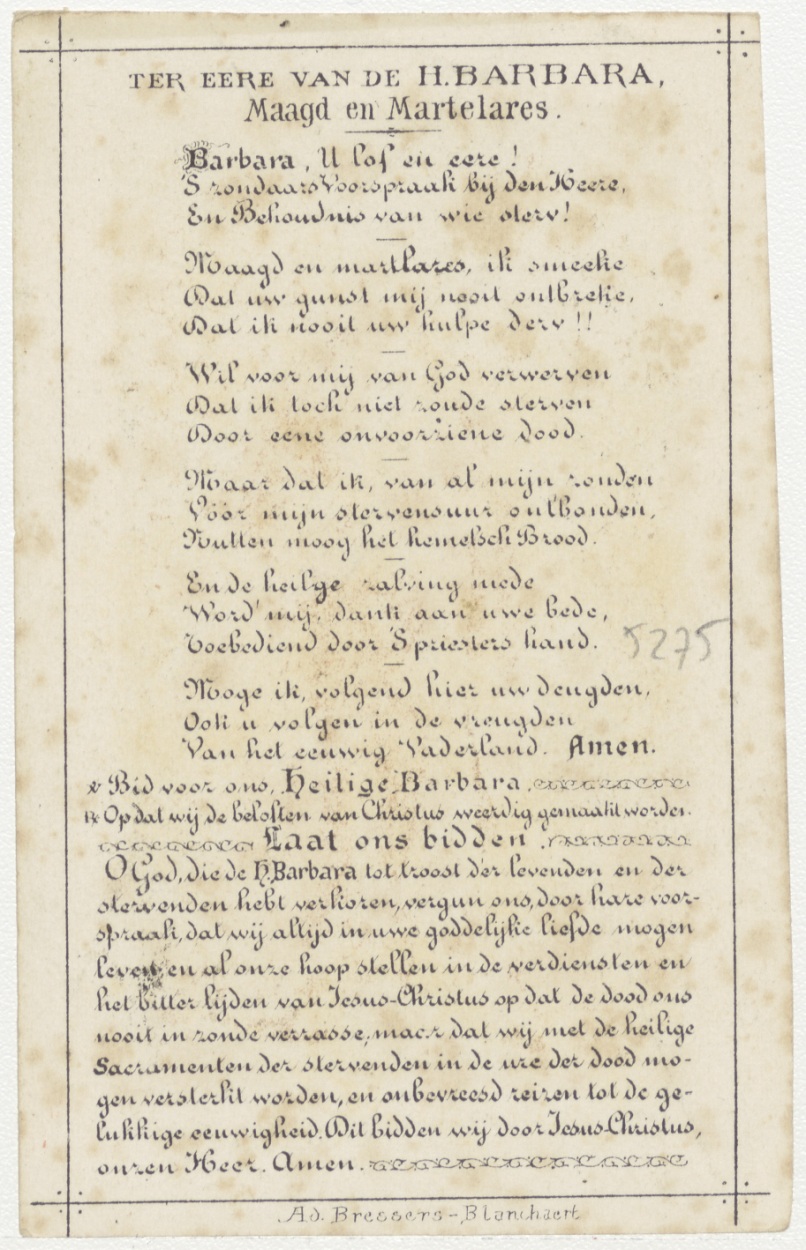 TER EERE VAN DE H. BARBARA,
Maagd en Martelares.
Barbara, U lof en eere!
'S zondaars Voorspraak bij den Heere,
En Behoudnis van wie sterv!
Maagd en martlares, ik smeeke
Dat uw gunst mij nooit ontbreke,
Dat ik nooit uw hulpe derv!!
Wil voor mij van God verwerven
Dat ik toch niet zoude sterven
Door eene onvoorziene dood.
Maar dat ik, van al mijn zonden
Vóór mijn stervensuur ontbonden,
Nutten moog het hemelsch Brood.
En de heilge zalving mede
Word' mij, dank aan uwe bede,
Toebediend door 'S priesters hand.
5275
Moge ik, volgend hier uw deugden,
Ook u volgen in de vreugden
Van het eeuwig Vaderland. Amen.
℣ Bid voor ons, Heilige Barbara,
℟ Opdat wij de beloften van Christus weerdig gemaakt worden.
Laat ons bidden.
O God, die de H. Barbara tot troost der levenden en der
stervenden hebt verkoren, vergun ons, door hare voor-
spraak, dat wij altijd in uwe goddelijke liefde mogen
leven, en al onze hoop stellen in de verdiensten en
het bitter lijden van Jesus-Christus op dat de dood ons
nooit in zonde verrasse, maar dat wij met de heilige
Sacramenten der stervenden in de ure der dood mo-
gen versterkt worden, en onbevreesd reizen tot de ge-
lukkige eeuwigheid. Dit bidden wij door Jesus-Christus,
onzen Heer. Amen.
Ad. Bressers-Blanchaert